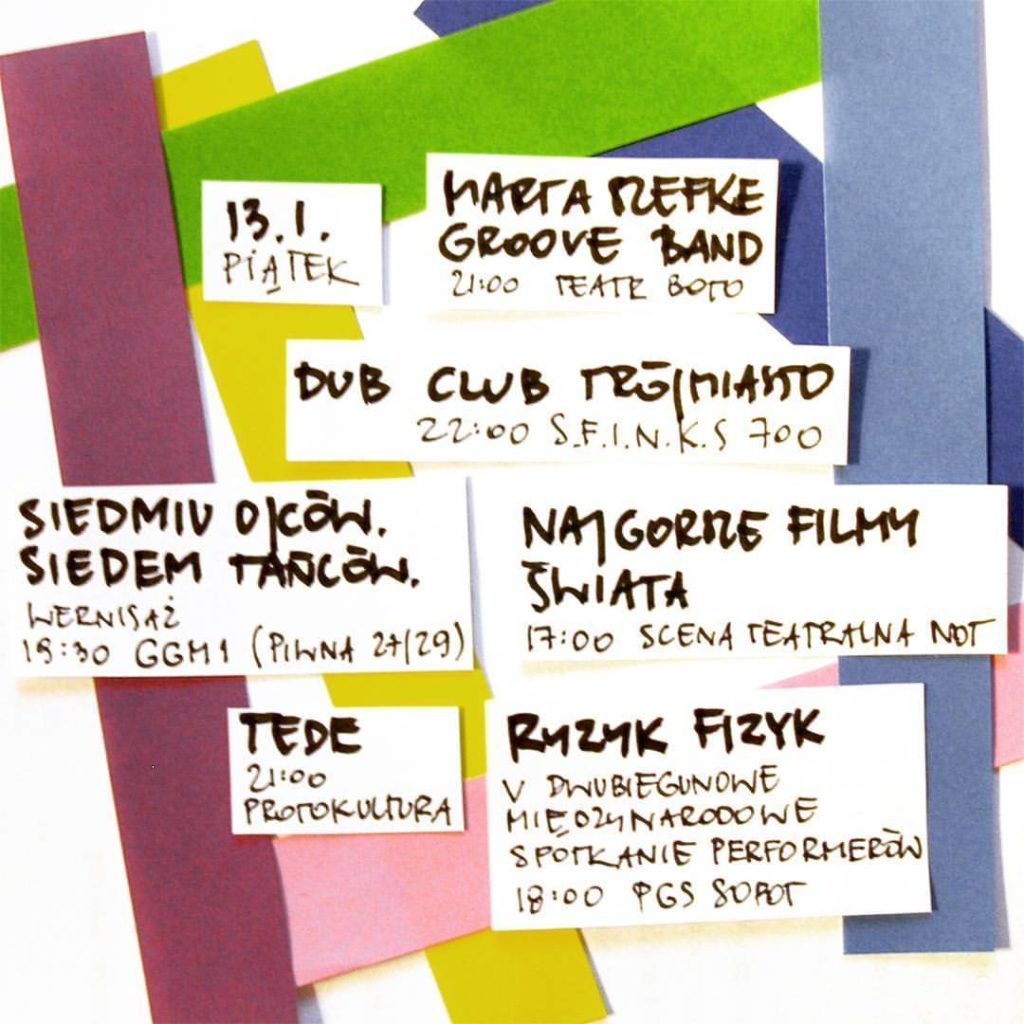 13.I.
PIĄTEK
MARTA RZEFKE
GROOVE BAND
21:00 TEATR BOTO
DUB CLUB TRÓJMIASTO
22:00 S.F.I.N.K.S 700
SIEDMIU OJCÓW.
SIEDEM TAŃCÓW.
WERNISAŻ
19:30 GGM1 (PIWNA 27/29)
NAJGORSZE FILMY
ŚWIATA
17:00 SCENA TEATRALNA NOT
TEDE
21:00
PROTOKULTURA
RYZYK FIZYK
V DWUBIEGUNOWE
MIĘDZYNARODOWE
SPOTKANIE PERFORMERÓW
18:00 PGS SOPOT